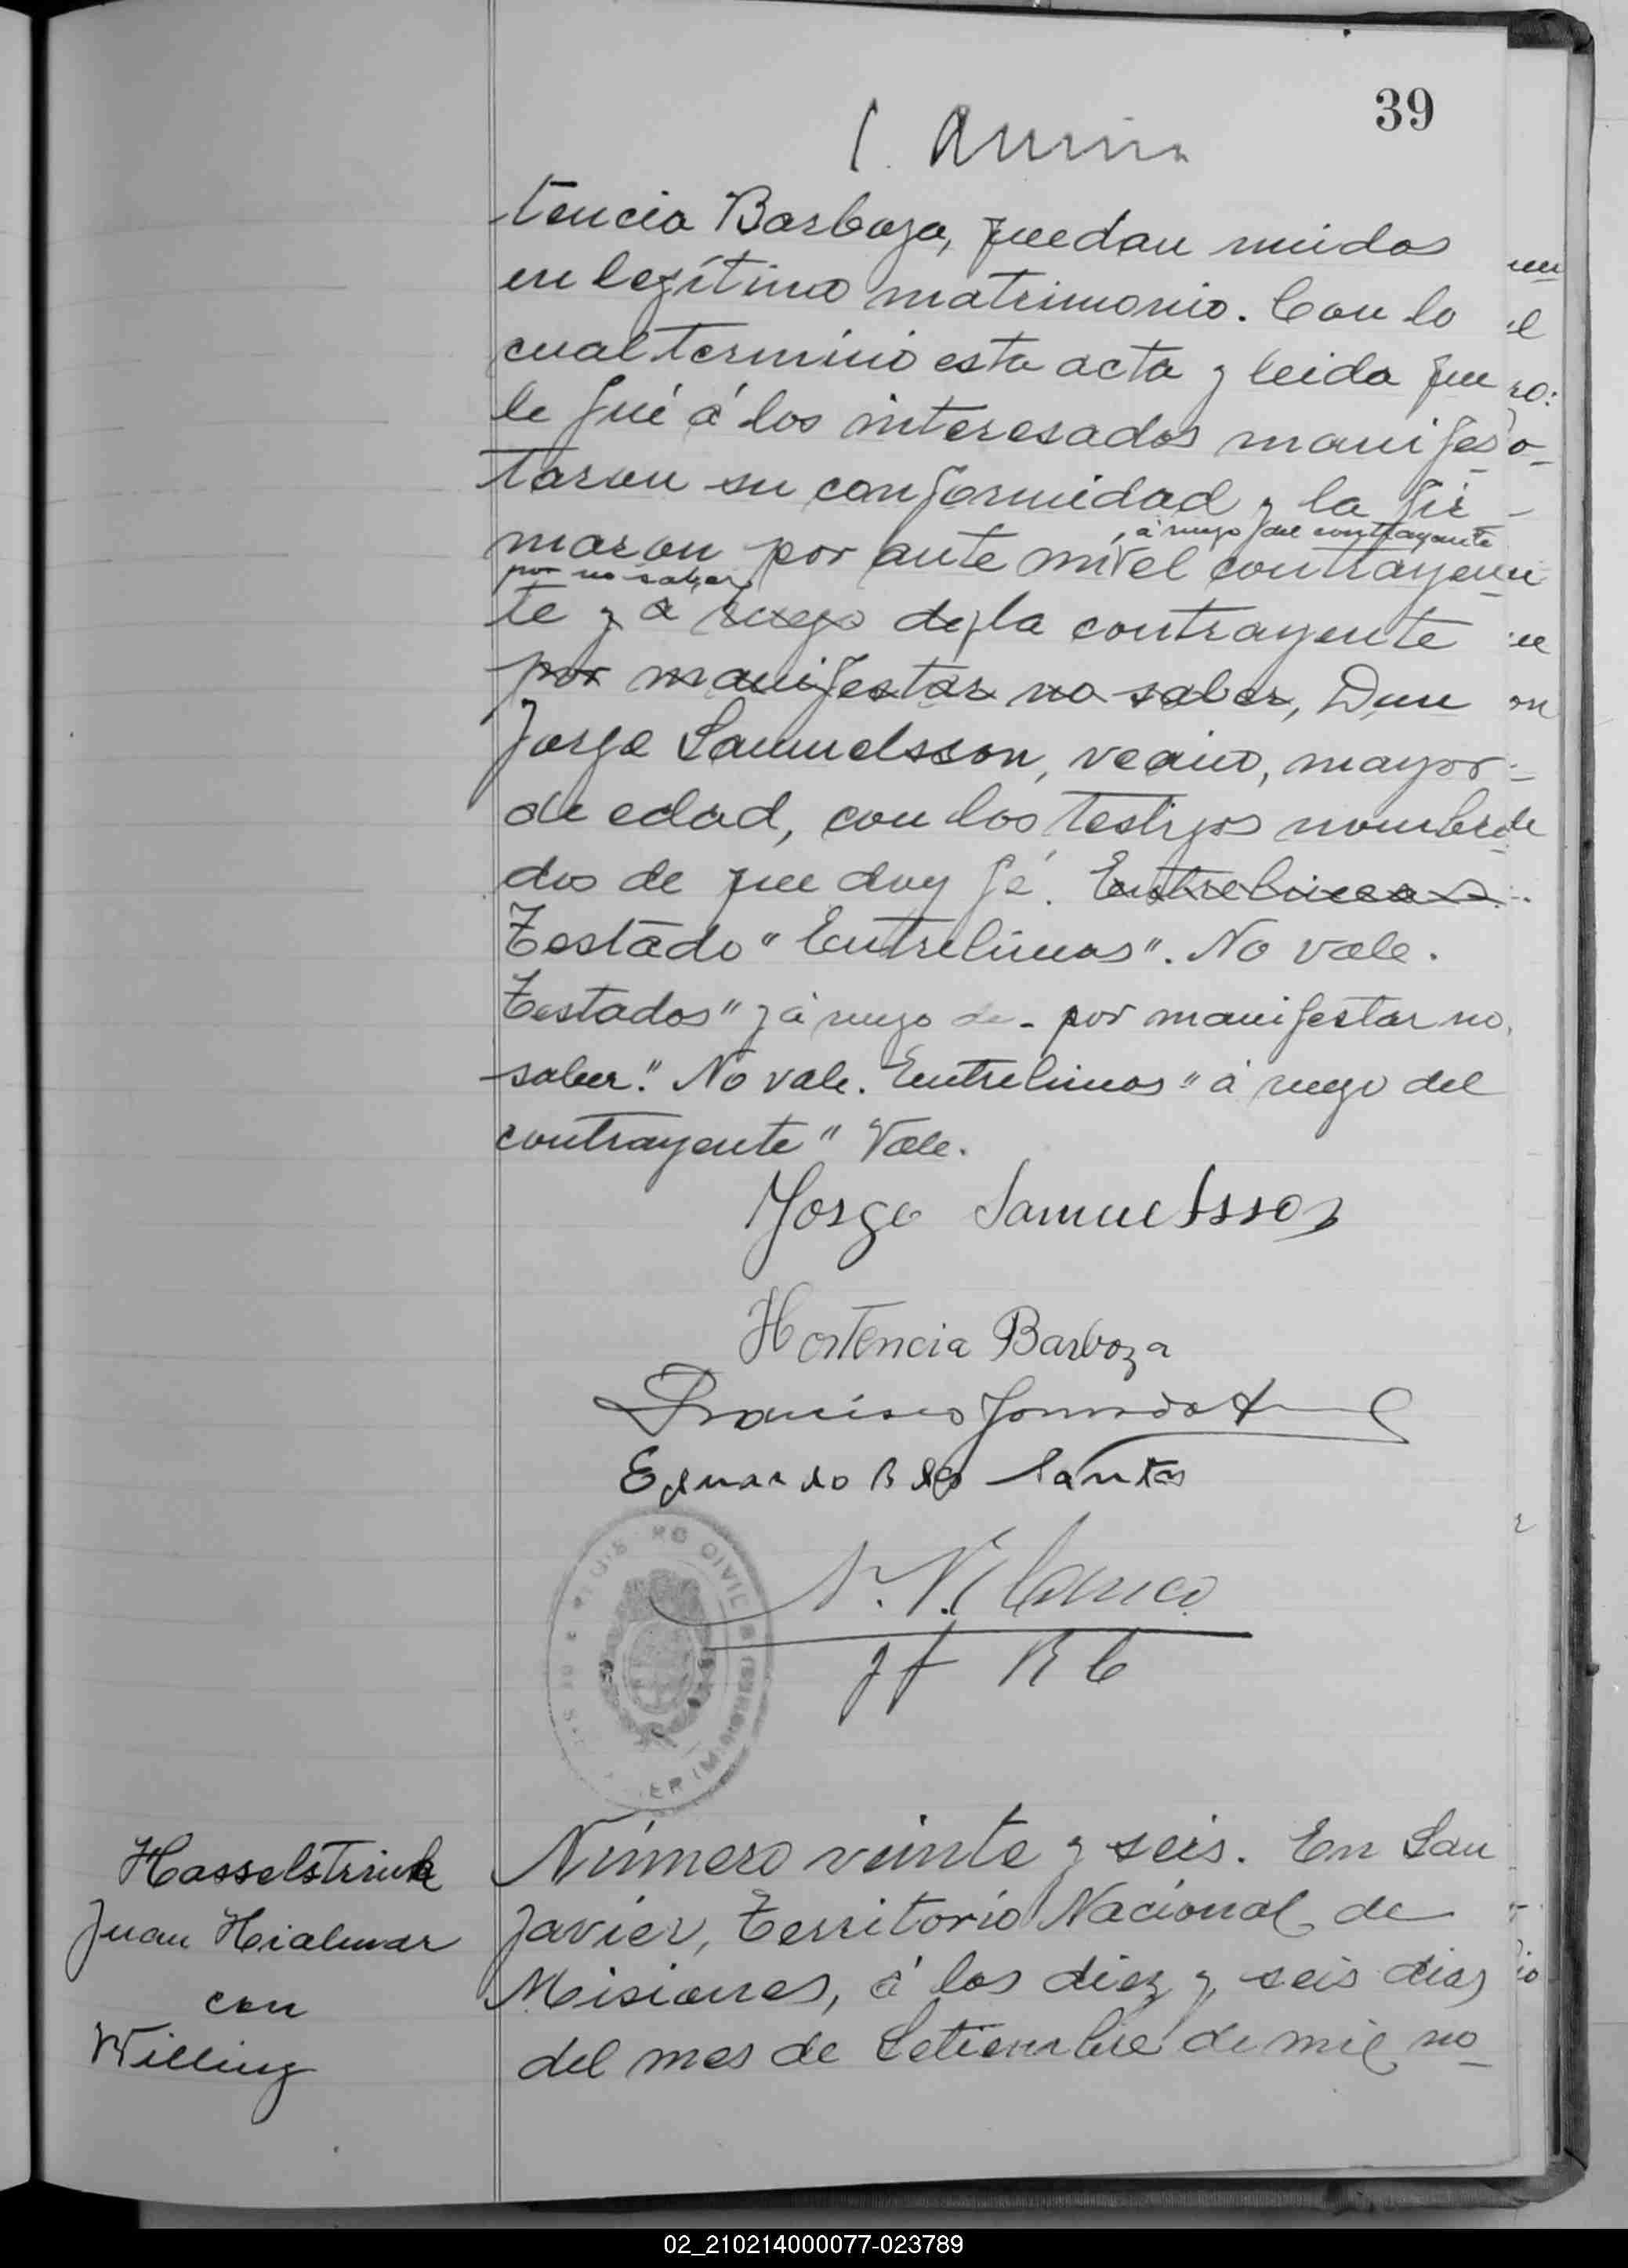 39
tencia Barboza, quedan unidos
en legítimo matrimonio. Con lo
cual terminó esta acta y leida que
le fué á los interesados manifes-
taron su conformidad y la fir-
maron por ante mi el contrayen-
, á ruego del contrayente
por no saber,
te y á ruego de la contrayente
por manifestar no saber, Don
Jorge Samuelsson, vecino, mayor
de edad, con los testigos nombra-
dos de que doy fé. Entrelineas
Testado "Entrelineas". No vale.
Testados "y á ruego de - por manifestar no
saber." No vale. Entrelineas "á ruego del
contrayente" Vale.
Jorge Samuelsson
Hortencia Barboza
Francisco
Eduardo B dos Santos
REGISTRO CIVIL
Hasselstrink
Juan Hialmar
con
Willing
Número veinte y seis. En San
Javier, Territorio Nacional de
Misiones, á los diez y seis dias
del mes de Setiembre de mil no-
02_210214000077-023789